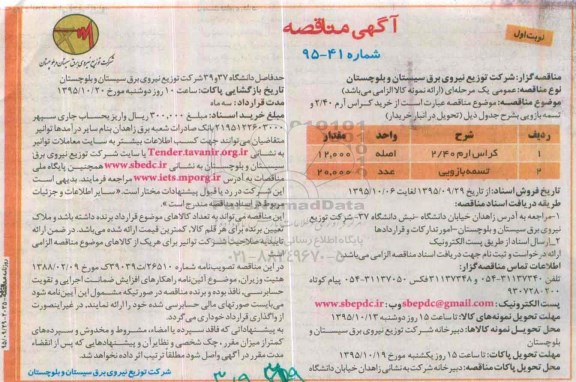 آگهی مناقصه
شماره ۴۱-۹۵
نوبت اول
شرکت توزیع نیروی برق سیستان و بلوچستان
مناقصه گزار: شرکت توزیع نیروی برق سیستان و بلوچستان
نوع مناقصه: عمومی یک مرحله‌ای (ارائه نمونه کالا الزامی می‌باشد)
موضوع مناقصه: موضوع مناقصه عبارت است از خرید کراس آرم ۲/۴۰ و
تسمه بازویی بشرح جدول ذیل (تحویل در انبار خریدار)
ردیف شرح واحد مقدار
۱ کراس آرم ۲/۴۰ اصله ۱۲,۰۰۰
۲ تسمه بازویی عدد ۲۰,۰۰۰
تاریخ فروش اسناد: از تاریخ ۱۳۹۵/۰۹/۲۹ لغایت ۱۳۹۵/۱۰/۰۶
طریقه دریافت اسناد مناقصه:
۱-مراجعه به آدرس زاهدان خیابان دانشگاه -نبش دانشگاه ۳۷- شرکت توزیع
نیروی برق سیستان و بلوچستان-امور تدارکات و قراردادها
۲-ارسال اسناد از طریق پست الکترونیک
ارائه درخواست و ثبت نام جهت دریافت اسناد مناقصه الزامی می‌باشد
اطلاعات تماس مناقصه گزار:
تلفن ۳۱۱۳۷۲۴۰-۰۵۴ و ۳۱۱۳۷۳۴۸ فکس ۳۱۱۳۷۰۵۰-۰۵۴ پیام کوتاه
۹۳۰۷۳۸۰۲۰۰
پست الکترونیک: sbepdc@gmail.com وب: www.sbepdc.ir
مهلت تحویل نمونه‌های کالا: تا ساعت ۱۵ روز دوشنبه ۱۳۹۵/۱۰/۱۳
محل تحویل نمونه کالاها: دبیرخانه شرکت توزیع نیروی برق سیستان و
بلوچستان
مهلت تحویل پاکات: تا ساعت ۱۵ روز یکشنبه مورخ ۱۳۹۵/۱۰/۱۹
محل تحویل پاکات مناقصه: دبیرخانه شرکت به نشانی زاهدان خیابان دانشگاه
حدفاصل دانشگاه ۳۷ و ۳۹ شرکت توزیع نیروی برق سیستان و بلوچستان
تاریخ بازگشایی پاکات: ساعت ۱۰ روز دوشنبه مورخ ۱۳۹۵/۱۰/۲۰
مدت قرارداد: سه ماه
مبلغ خرید اسناد: مبلغ ۳۰۰,۰۰۰ ریال واریز بحساب جاری سپهر
بانک صادرات شعبه برق زاهدان بنام سایر درآمدها توانیر
متقاضیان می‌توانند جهت کسب اطلاعات بیشتر به سایت معاملات توانیر
به نشانی Tender.tavanir.org.ir یا سایت شرکت توزیع نیروی برق
سیستان و بلوچستان به نشانی www.sbedc.ir همچنین پایگاه ملی
مناقصات به آدرس www.iets.mporg.ir مراجعه فرمایند. بدیهی است
این شرکت در رد یا قبول پیشنهادات مختار است « سایر اطلاعات و جزئیات
مربوط در اسناد مناقصه مندرج است »
این مناقصه می‌تواند به تعداد کالاهای موضوع قرارداد برنده داشته باشد و ملاک
تعیین برنده برای هر قلم کالا، کمترین قیمت ارائه شده می‌باشد. در ضمن ارائه
تاییدیه صلاحیت شرکت توانیر برای هر یک از کالاهای موضوع مناقصه الزامی
است.
در این مناقصه تصویب‌نامه شماره ۲۶۵۱۰/ت۳۹۰۳۹ک مورخ ۱۳۸۸/۰۲/۰۹
هیئت وزیران، موضوع آئین‌نامه راهکارهای افزایش ضمانت اجرایی و تقویت
حسابرسی، نافذ بوده و برنده مناقصه در صورتیکه مشمول این آیین‌نامه شود
می‌بایست صورتهای مالی حسابرسی شده خود را ارائه نمایند. در غیر اینصورت
از واگذاری قرارداد خودداری می‌گردد.
به پیشنهاداتی که فاقد سپرده یا امضاء، مشروط و مخدوش و سپرده‌های
کمتر از میزان مقرر، چک شخصی و نظایر آن و پیشنهادهایی که پس از انقضاء
مدت مقرر در آگهی واصل شود مطلقا ترتیب اثر داده نخواهد شد.
شرکت توزیع نیروی برق سیستان و بلوچستان